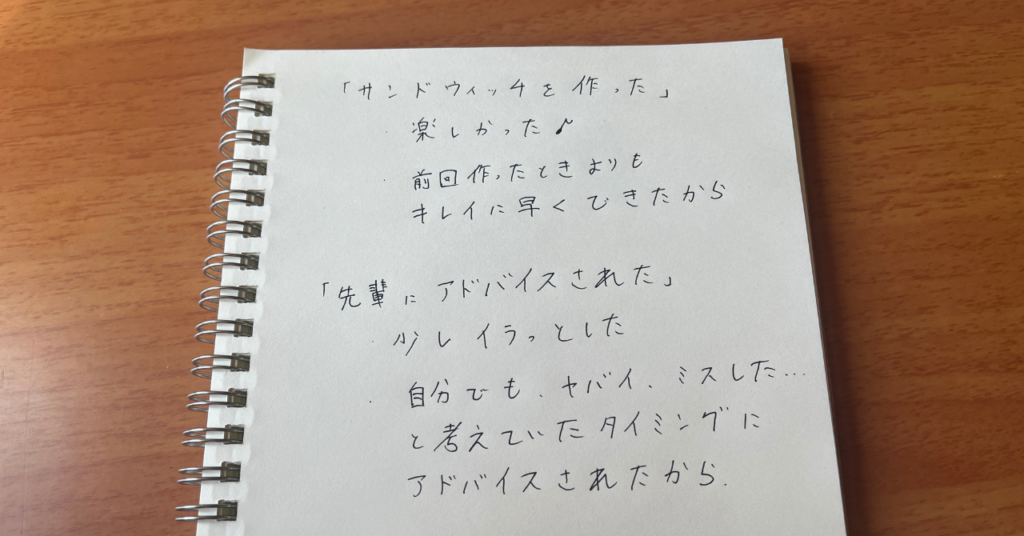 「サンドウィッチを作った」
・楽しかった♪
・前回作ったときよりも
キレイに早くできたから
「先輩にアドバイスされた」
・少しイラっとした
・自分でも、ヤバイ、ミスした…
と考えていたタイミングに
アドバイスされたから.